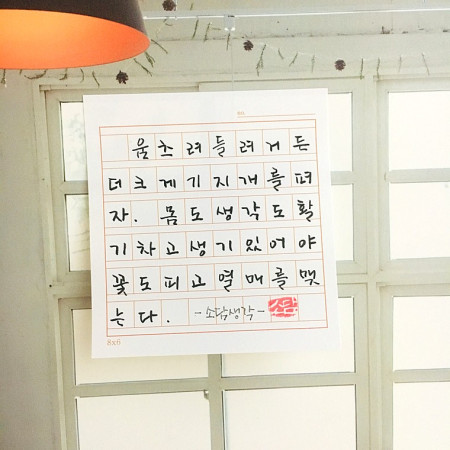 움츠려들려거든
더크게기지개를펴
자. 몸도생각도활
기차고생기있어야
꽃도피고열매를맺
는다. -소담생각- 소담
8x6